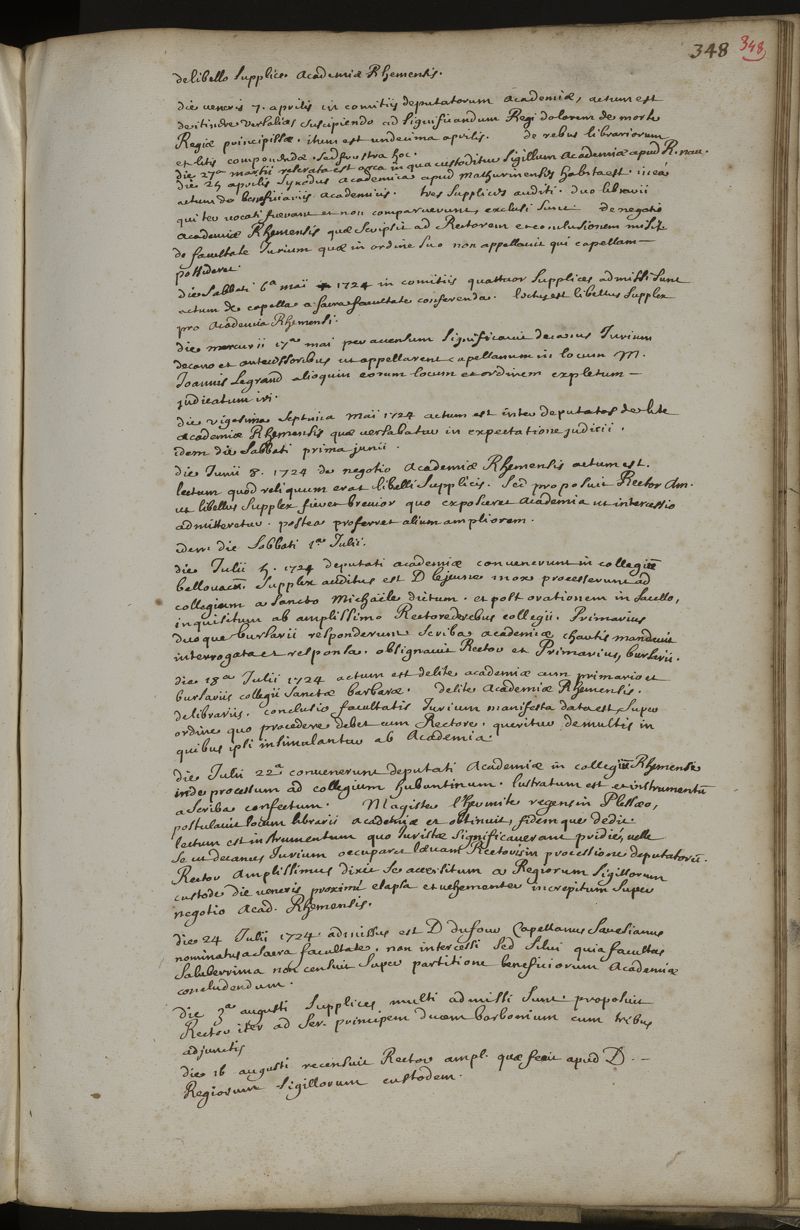 348 348
de libello supplice academiæ Rhemensis.
die veneris 7. aprilis in comitiis deputatorum academiæ, actum est
de itinere versalias suscipiendo ad significandum Regi dolorem de morte
Regiæ principissæ. itum est undecima aprilis. de rebus librariorum
et litis componendæ. sed frustra hoc.
die 27a martii relerata est arca in qua custoditur sigillum academiæ apud R. nau.
die 25 aprilis synodus academica apud mathurinenses habita est. in ea
actum de beneficiariis academicis. tres supplices auditi. duo librarii
qui ter vocati fuerant et non comparuerunt, exclusi sunt. de negotio
academiæ Rhemensis quæ scripsit ad Rectorem et conclusionem misit.
de facultate Jurium quæ in ordine suo non appellavit qui capellam—
possideret.
die sabbati 6a maii 1724 in comitiis quattuor supplices admissi sunt
actum de capella a sacra facultate conferenda. lectus est libellus supplex
pro academia Rhemensi.
die mercurii 17a mai per aversum significavit decanus Jurium
decano et antecessoribus ut appellarent capellanum in locum M.
Joannis Legrand alioquin eorum locum et ordinem expletum—
judicatum iri.
die vigesima septima maii 1724 actum est inter deputatos de lite
academiæ Rhemensis quæ versabatur in expectatione judicii.
idem die sabbati prima junii.
die Junii 8. 1724 de negotio academiæ Rhemensis actum est.
lectum quod reliquum erat libelli supplicis. sed proposuit Rector am.
ut libellus supplex fieret brevior quo exposceret academia ut intercessio
admitteretur. postea proferret alium ampliorem.
idem die sabbati 1a Julii.
die Julii 5. 1724 deputati academiæ convenerunt in collegium
bellovacum. supplex auditus est D lejeune mox processerunt ad
collegium a sancto Michaële dictum. et post orationem in sacello,
inquisitum ab amplissimo Rectore de rebus collegii. Primarius
duoque bursarii responderunt scriba academiæ chartis mandavit
interrogata et responsa. obsignavit Rector et Primarius, bursarii.
die 18a Julii 1724 actum est de lite academiæ cum primario et
bursariis collegii sanctæ barbaræ. de lite academiæ Rhemensis.
de librariis. conclusio facultatis Jurium manifesta data est super
ordine quo procedere debet cum Rectore. queritur de multis in
quibus ipsi insimulantur ab academia.
die Julii 22a convenerunt deputati academiæ in collegium Rhemense
inde processum ad collegium hubantinum. lustratum est et instrumentum
a scriba confectum. Magister l'hermite regens in Plessæo,
postulavit locum librarii academiæ et obtinuit, fidem que dedit.
lectum est instrumentum quo Juristæ significaverant pridie, velle
se ut decanus Jurium occuparet lævam Rectoris in processione deputatorum.
Rector amplissimus dixit se accersitum a Regiorum sigillorum
custode die veneris proximè elapsa et vehementer increpitum super
negotio acad. Rhemensis.
die 24 Julii 1724 admissus est D dufour capellanus savesianus
nominatus a sacra facultate. non intercessi sed silui quia facultas
saluberrima non censuit super partitione beneficiorum academiæ
concludendum.
die 3a augusti supplices multi admissi sunt. proposuit
Rector iter ad ser. principem ducem borbonium cum tribus
adjunctis
die 16 augusti recensuit Rector ampl. quæ fecit apud D.—
Regiorum sigillorum custodem.